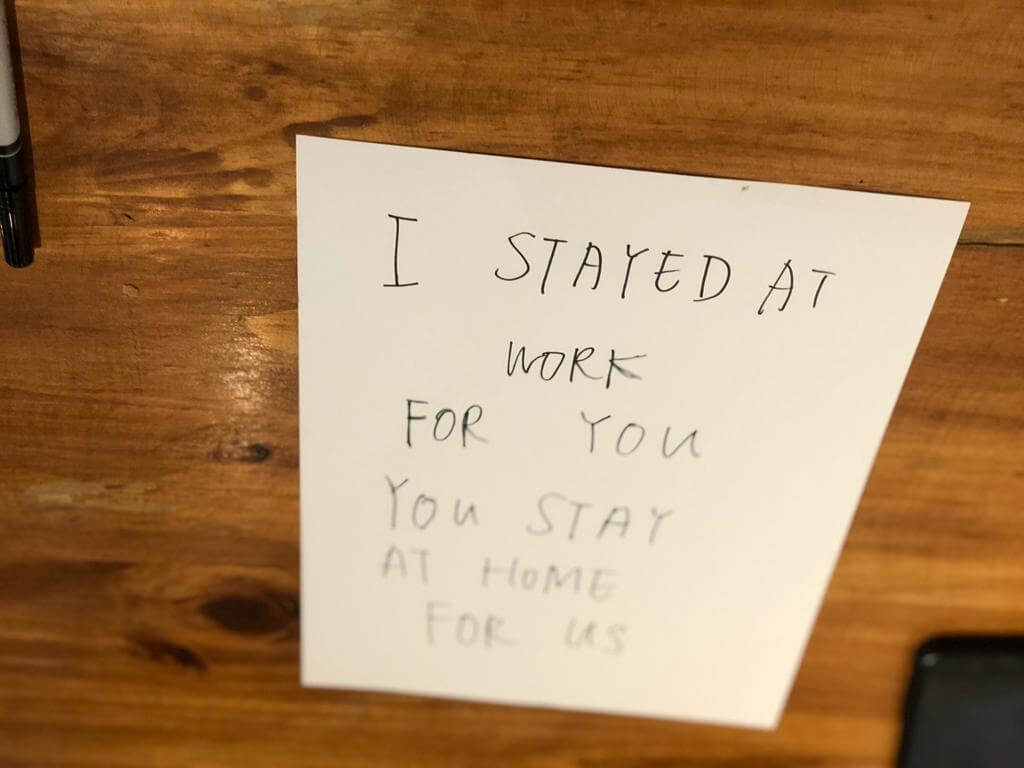 I STAYED AT
WORK
FOR YOU
YOU STAY
AT HOME
FOR US